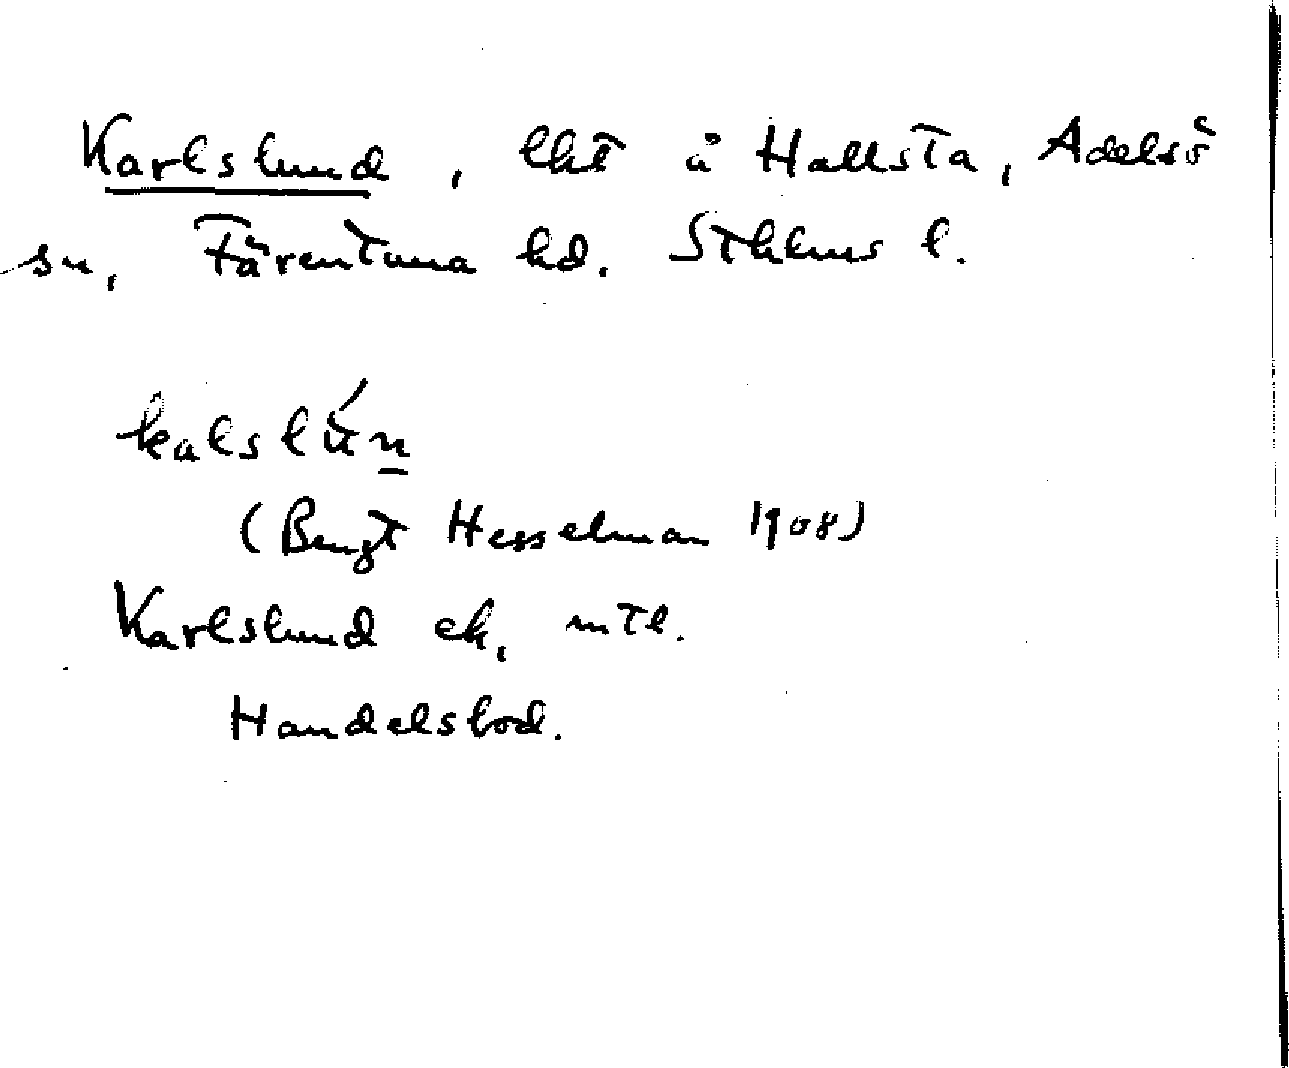 Karlslund, lht å Hallsta, Adelsö
sn, Färentuna hd. Sthlms l.
kalslún
(Bengt Hesselman 1908)
Karlslund ek, mtl.
Handelsbod.